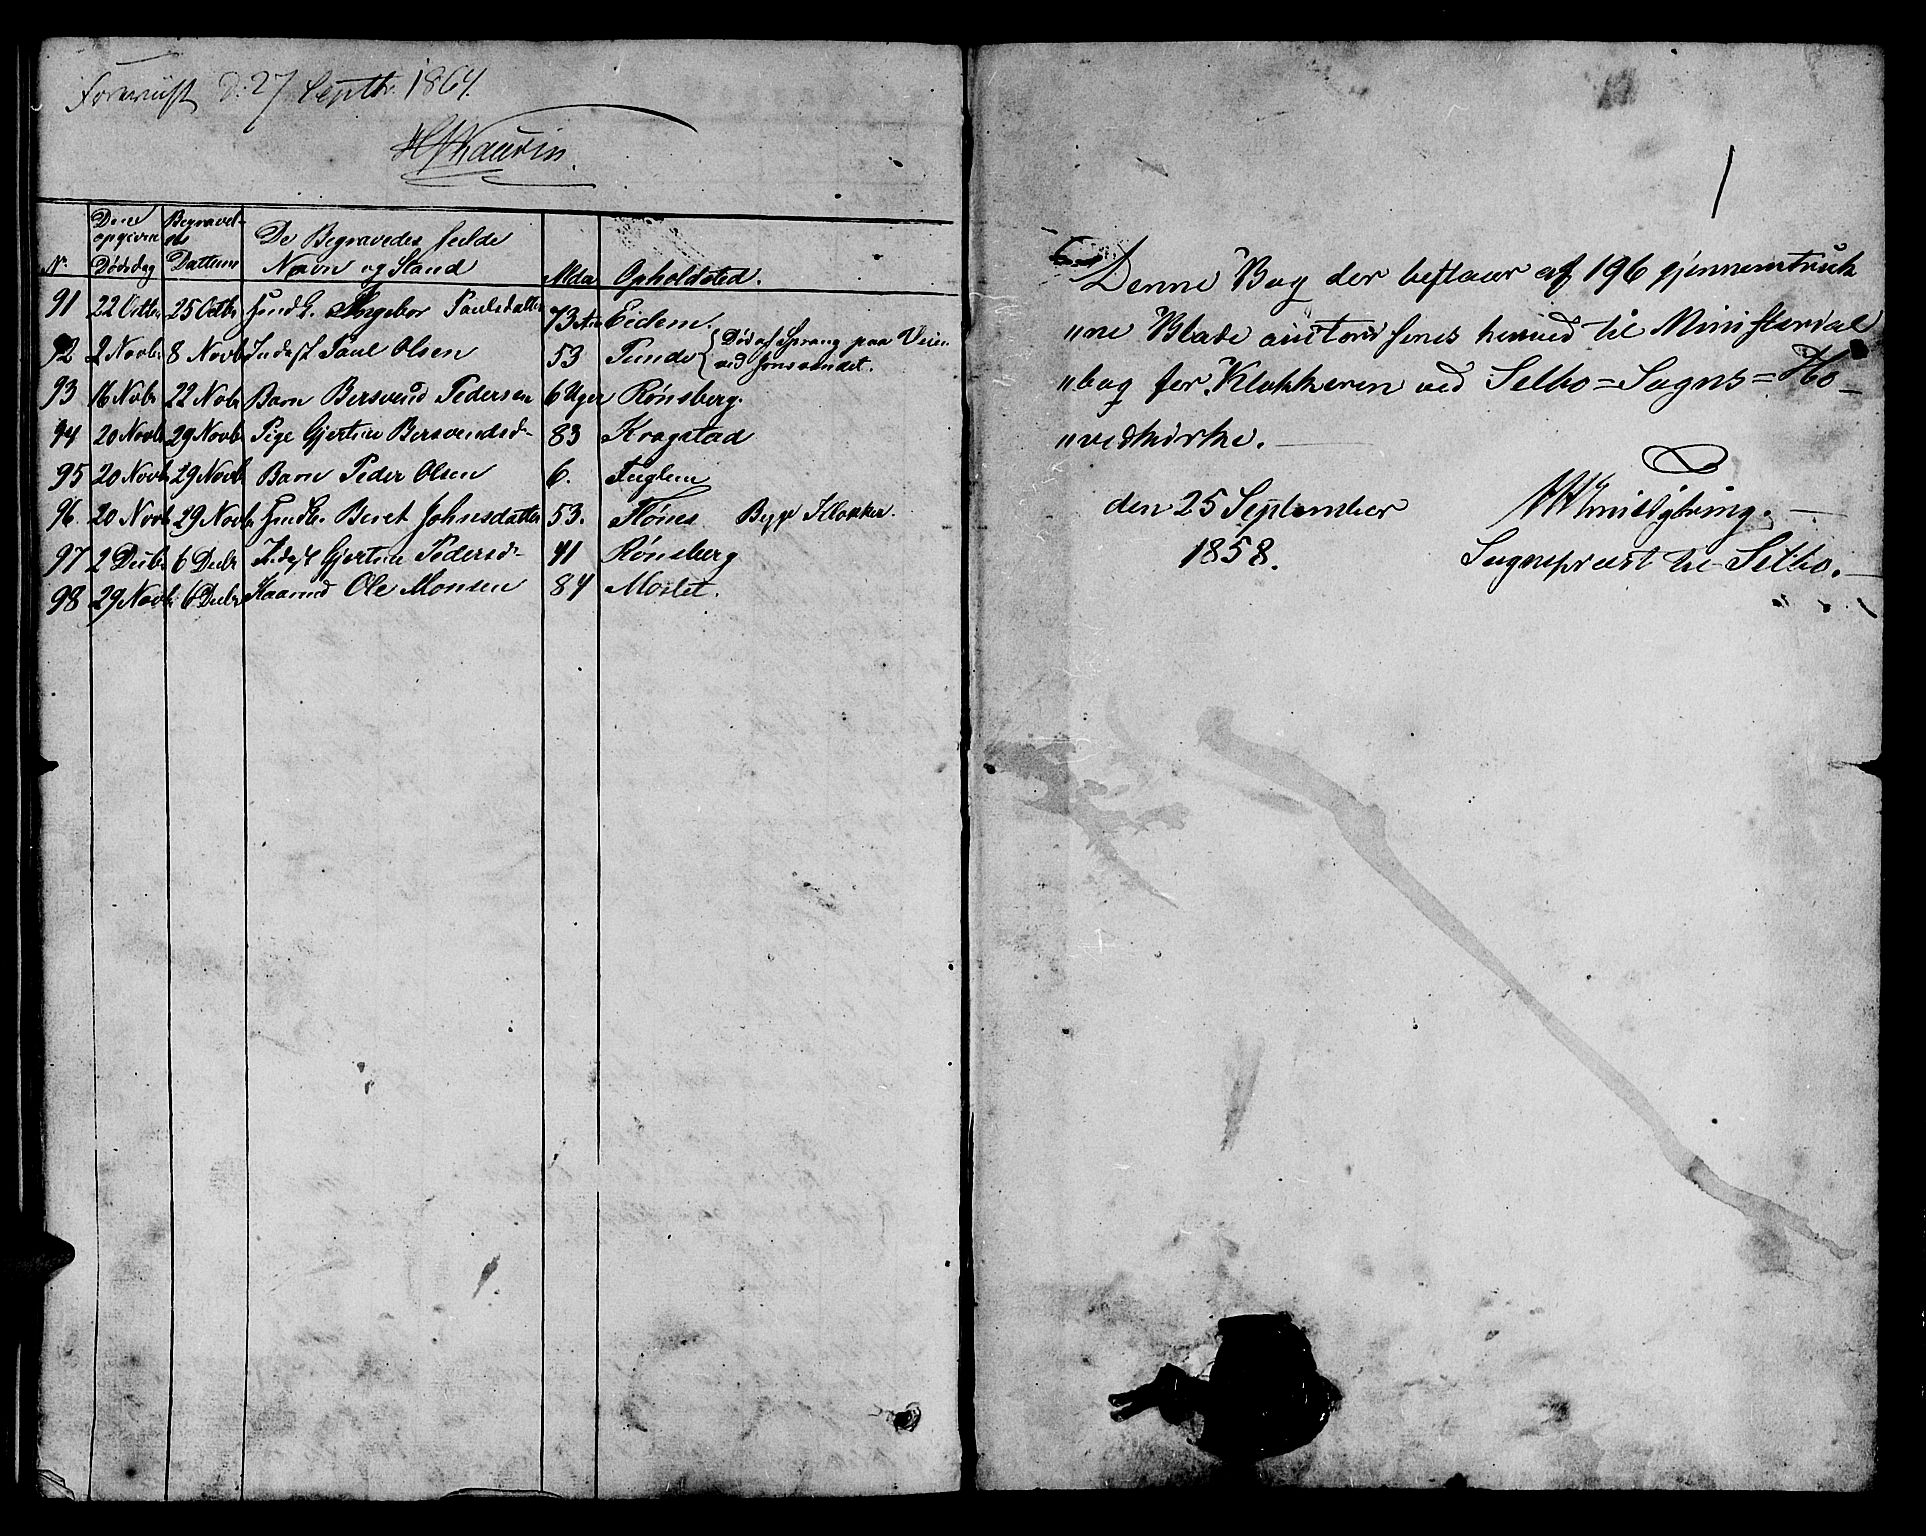 Foreviist d: 27 Septbr. 1864.
Kaurin
No
Den opgivne Dødsdag
Begravelses Dattum
De Begravedes fulde Navn og Stand
Alder
Opholdsted.
91 22 Octbr 25 Octbr Ingebor Paulsdatter 73 Aar Eidem.
92 2 Novbr 8 Novbr Inderst Paul Olsen 53 Død af Sprang paa Veien ved
93 16 Novbr 22 Novbr Barn Bersvend Pedersen 6 Uger Rønsberg.
94 20 Novbr 29 Novbr Pige Gjertrue Bersvendsd- 83 Kragstad
95 20 Novbr 29 Novbr Barn Peder Olsen 6. Fuglem
96. 20 Novbr 29 Novbr Beret Johnsdatter 53. Flønes. Bygs Klokker.
97 2 Decbr 6 Decbr Inderst Gjertrue Pedersd- 41 Rønsberg
98 29 Novbr 6 Decbr Kaarmd Ole Monsen 84 Moslet.
1
Denne Bog der bestaaer af 196 gjennemtruk
"ne Blade autoriseres herved til Ministerial
"bog for Klokkeren ved Selbo=Sogns=Ho-
"vedkirke.
den 25 September
1858.
Sognepræst til Selbo.